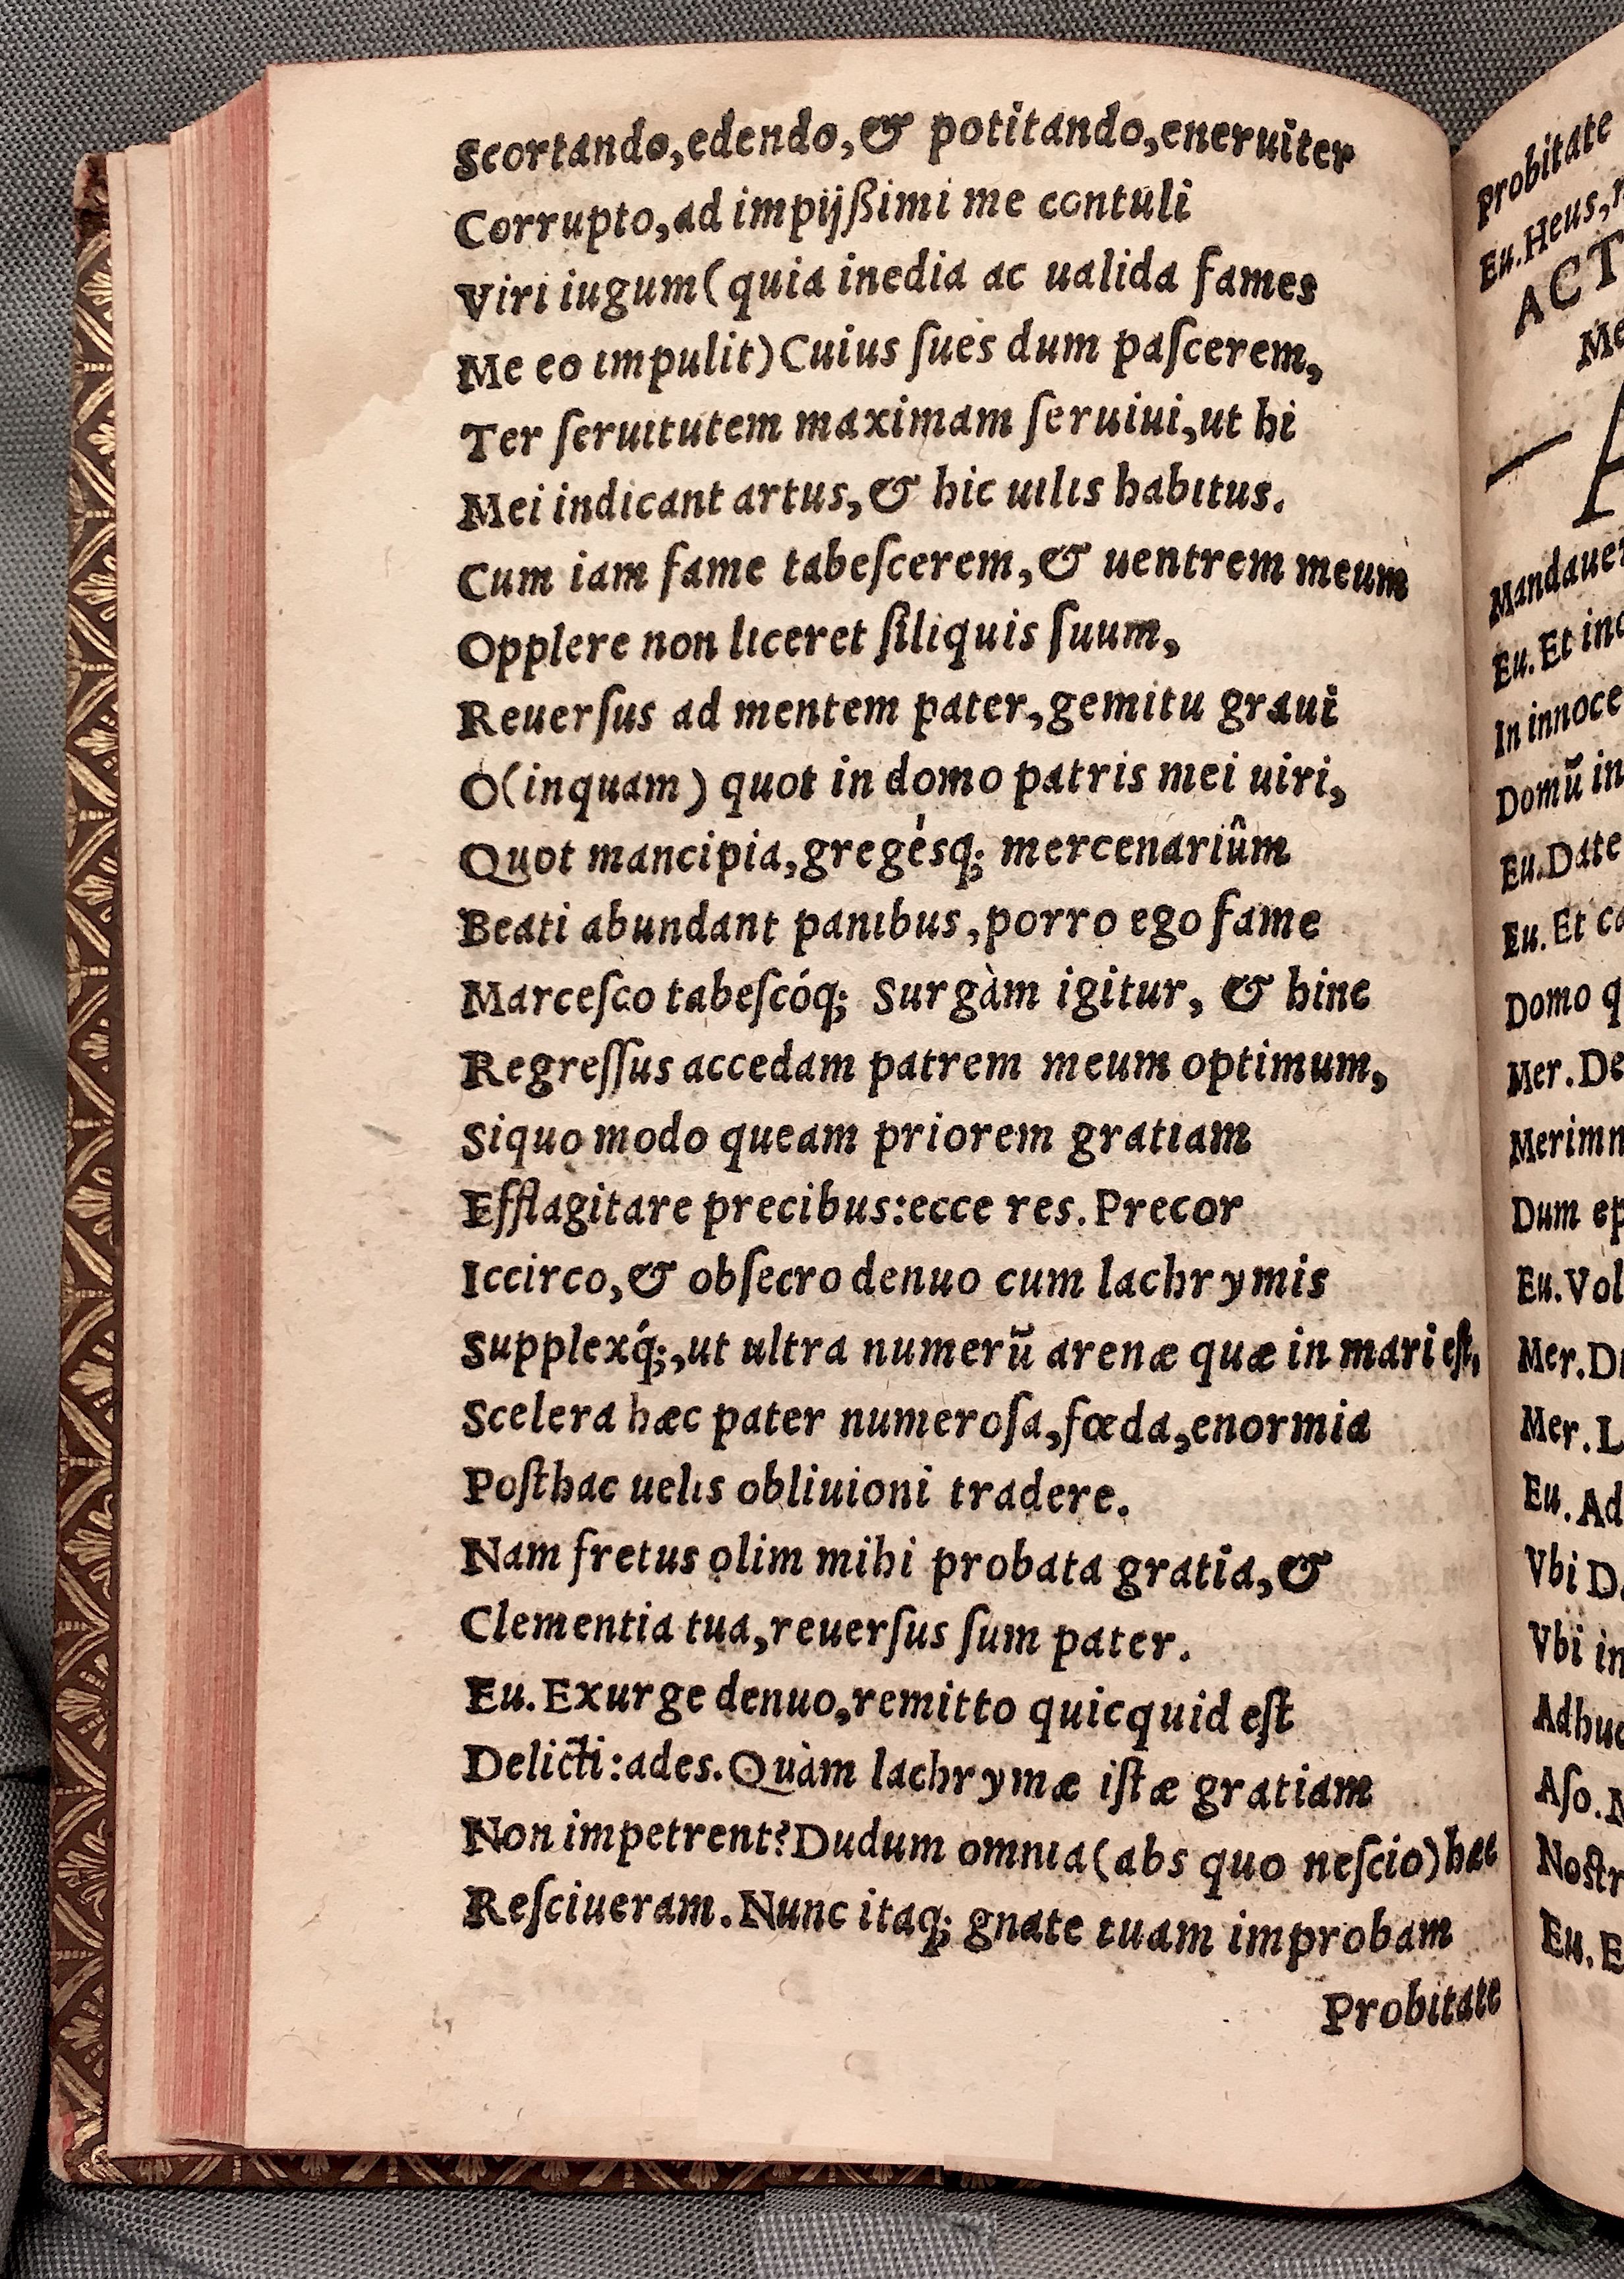 Scortando,edendo,& potitando,eneruiter
Corrupto,ad impijßimi me contuli
Viri iugum(quia inedia ac ualida fames
Me eo impulit)Cuius ſues dum paſcerem,
Ter ſeruitutem maximam ſeruiui,ut hi
Mei indicant artus,& hic uilis habitus.
Cum iam fame tabeſcerem,& uentrem meum
Opplere non liceret ſiliquis ſuum,
Reuerſus ad mentem pater,gemitu graui
O(inquam) quot in domo patris mei uiri,
Quot mancipia,gregésq; mercenariûm
Beati abundant panibus,porro ego fame
Marceſco tabeſcóq; Surgàm igitur, & hinc
Regreſſus accedam patrem meum optimum,
Siquo modo queam priorem gratiam
Efflagitare precibus:ecce res. Precor
Iccirco,& obſecro denuo cum lachrymis
Supplexq́;,ut ultra numerū arenæ quæ in mari eſt,
Scelera hæc pater numeroſa,fœda,enormia
Poſthac uelis obliuioni tradere.
Nam fretus olim mihi probata gratia,&
Clementia tua,reuerſus ſum pater.
Eu.Exurge denuo,remitto quicquid eſt
Delicti:ades.Quàm lachrymæ iſtæ gratiam
Non impetrent?Dudum omnia(abs quo neſcio)hæc
Reſciueram.Nunc itaq; gnate tuam improbam
Probitate
Probitate
Eu.Heus,
ACT
Me
A
Mandauer
Eu.Et
In innoce
Domū in
Eu.Date
Eu.Et
Domo
Mer.De
Merimn
Dum
Eu.Vol
Mer.
Mer.L
Eu.Ad
Vbi
Vbi in
Adhuc
Aſo.
Noſtr
Eu.E